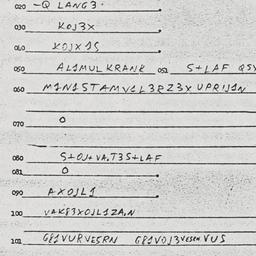 020 -Q LANG3.
030 KOJ3X
040 KOJX1S
050 AL1MUL KRANE 051 S+LAF QSX
060 M1N1STAMV1L3RZ3X UPRIJ1N
070 O
080 S+OJ+VA.T3S+LAF
081 O
090 AXOJL1
100 VAK83XOJL1ZA.N
101 G81VURVESRN G81VOJ3VESRNVUS